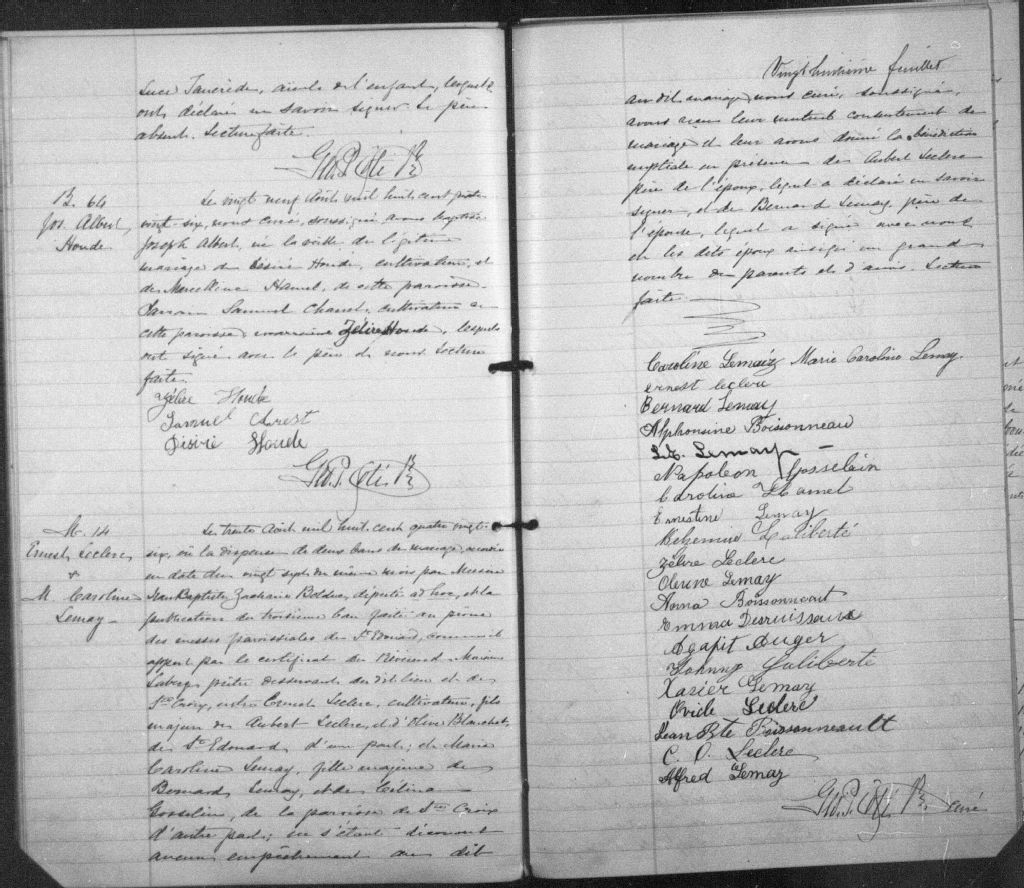 Luce Tancrède, aieule de l'enfant, lesquels
ont déclaré ne savoir signer. Le père
absent. Lecture faite.
Geo. P. Côté Ptre
B. 64
Jos. Albert
Houde
Le vingt neuf Août mil huit cent quatre
vingt-six, nous curé, soussigné avons baptisé
Joseph Albert, né la veille du légitime
mariage de Désiré Houde, cultivateur, et
de Marcelline Hamel, de cette paroisse.
Parrain Samuel Charest, cultivateur de
cette paroisse, marraine Zélire Houde, lesquels
ont signé avec le père de nous. Lecture
faite.
Zélire Houde
Samuel Charest
Désiré Houde
Geo. P. Côté Ptre
M. 14
Ernest Leclerc
&
M. Caroline
Lemay
Le trente Août mil huit cent quatre vingt-
six, vu la dispense de deux bans de mariage accordée
en date du vingt sept du même mois par Messire
Jean Baptiste Zacharie Bolduc, député ad hoc, et la
publication du troisième ban faite au prône
des messes paroissiales de St Edouard, comme il
appert par le certificat du Révérend Monsieur
prêtre desservant du dit lieu et de
Ste Croix, entre Ernest Leclerc, cultivateur, fils
majeur de Aubert Leclerc, et d'Olive Blanchet,
de St Edouard d'une part; et Marie
Caroline Lemay, fille majeure de
Bernard Lemay, et de Célina
Gosselin, de la paroisse de Ste Croix
d'autre part; ne s'étant découvert
aucun empêchement au dit
Vingt huitième feuillet
au dit mariage, nous curé, soussigné,
avons reçu leur mutuel consentement de
mariage et leur avons donné la bénédiction
nuptiale en présence de Aubert Leclerc
père de l'époux, lequel a déclaré ne savoir
signer, et de Bernard Lemay père de
l'épouse, lequel a signé avec nous
et les dits époux ainsi qu'un grand
nombre de parents et d'amis. Lecture
faite.
Caroline Lemay Marie Caroline Lemay
Ernest leclerc
Bernard Lemay
Alphonsine Boisonneau
L.E. Lemay
Napoleon Gosselain
Caroline Hamel
Ernestine Lemay
Laliberté
Zélire Leclerc
Olevine Lemay
Anna Boissonneault
Emma Desruissaux
Agapit Auger
Johnny Laliberté
Xasier Lemay
Ovide Leclerc
Jean Bte Boissonneault
C. O. Leclerc
Alfred Lemay
Geo. P. Côté Ptre curé